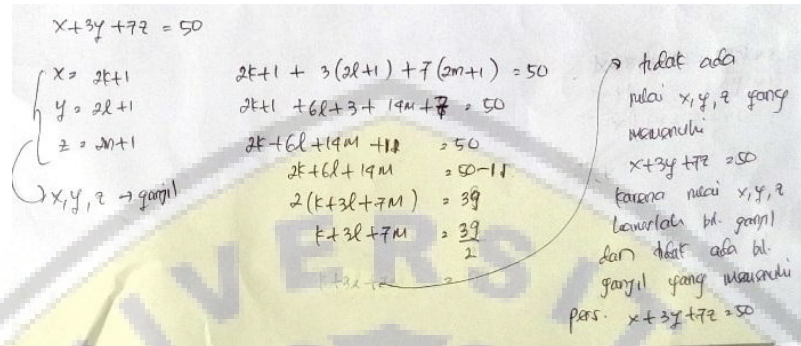 x+3y+7z = 50
x = 2k+1
y = 2l+1
z = 2m+1
x, y, z → ganjil
2k+1 + 3(2l+1) + 7(2m+1) = 50
2k+1 + 6l+3 + 14m+7 = 50
2k+6l+14m+11 = 50
2k+6l+14m = 50-11
2(k+3l+7m) = 39
k+3l+7m = 39/2
→ tidak ada
nilai x, y, z yang
memenuhi
x+3y+7z = 50
karena nilai x, y, z
haruslah bil. ganjil
dan tidak ada bil.
ganjil yang memenuhi
pers. x+3y+7z = 50
VERS